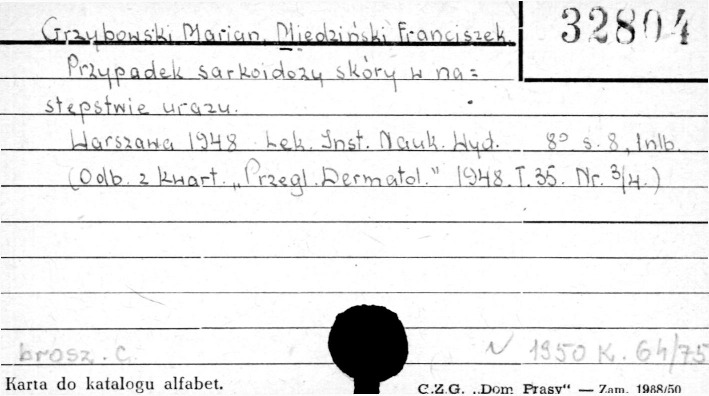 32804
Grzybowski Marian, Miedziński Franciszek.
Przypadek sarkoidozy skóry w na=
stępstwie urazu.
Warszawa 1948 Lek. Inst. Nauk. Wyd. 8° s. 8, 1nlb.
(Odb. z kwart. „Przegl. Dermatol." 1948. T. 35. Nr. 3/4.)
brosz. c. N 1950 K. 64/75
Karta do katalogu alfabet. C.Z.G. „Dom Prasy" — Zam. 1988/50